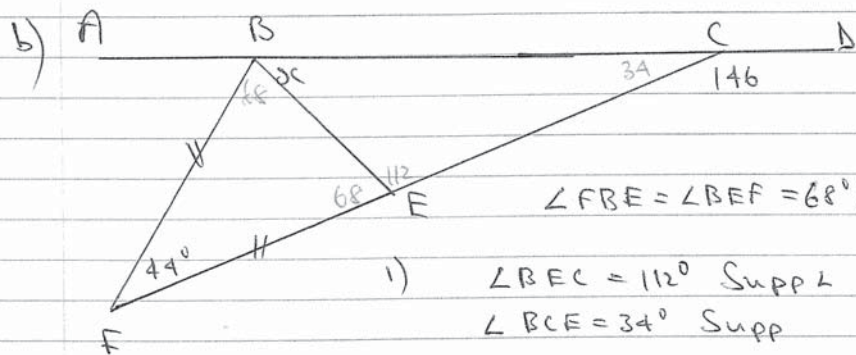 b) A B C D
x 34 146
68
68° 112
E ∠FBE = ∠BEF = 68°
44°
1) ∠BEC = 112° Supp ∠
F ∠BCE = 34° Supp